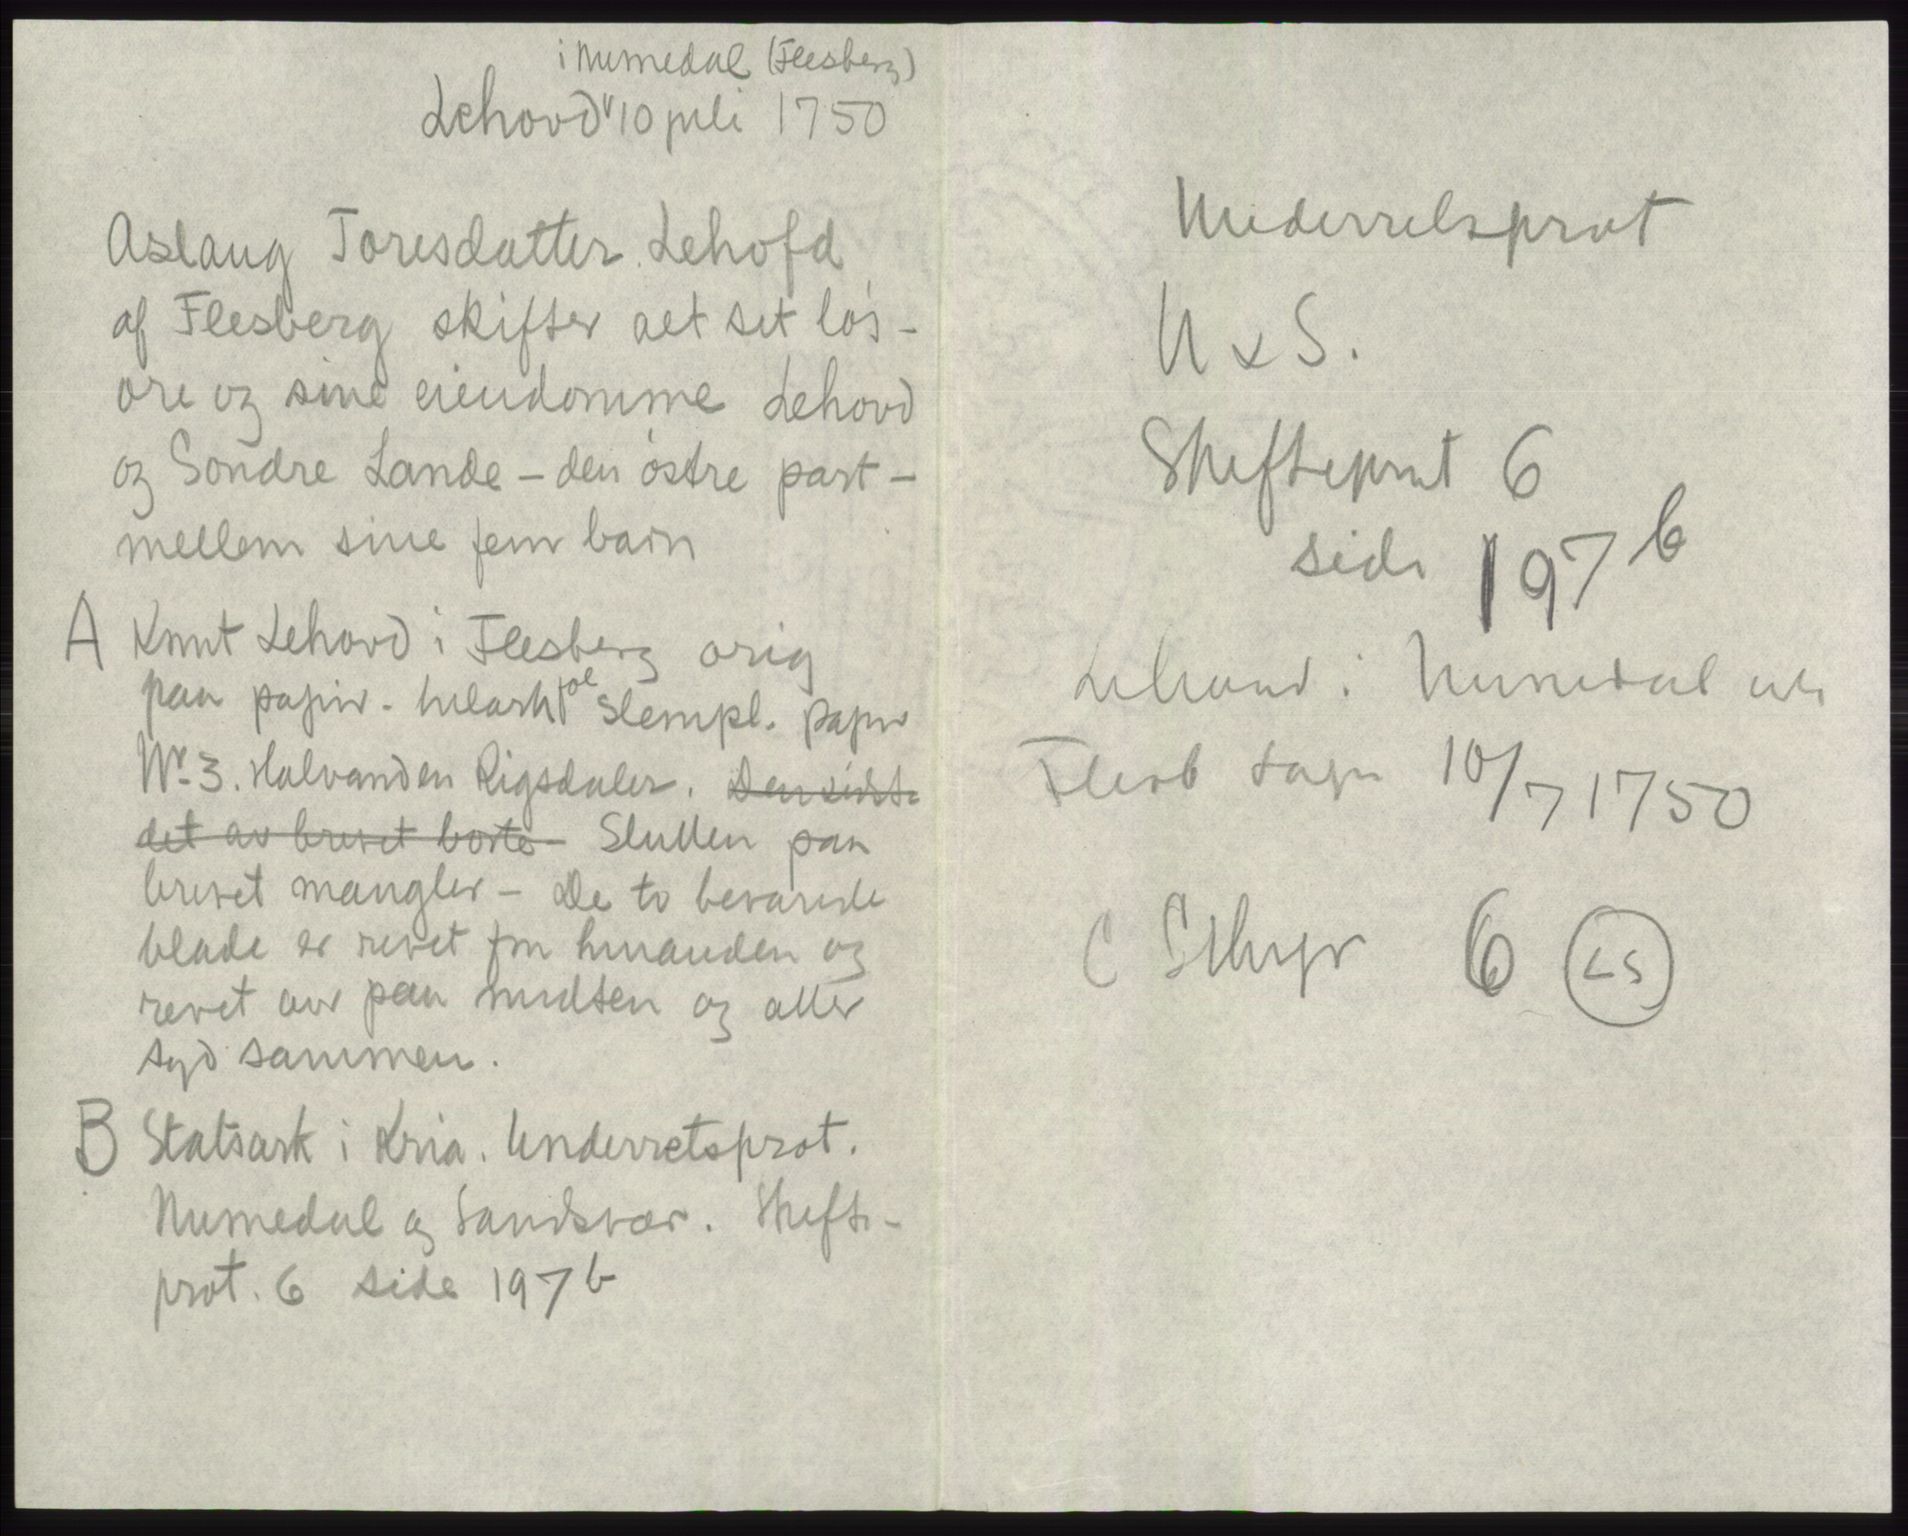 i Numedal (Flesberg)
Lehovd 10 juli 1750
Aslaug Toresdatter Lehofd
af Flesberg skifter alt set løs-
øre og sine eiendomme Lehovd
og Søndre Lande - den østre part -
mellem sine fem barn
A Knut Lehovd i Flesberg orig
paa papir - helark stempl. papir
No 3. Halvanden Rigsdaler. Den sidste
det av brevet borte Slutten paa
brevet mangler - De to bevarede
blade er revet fra hinanden og
revet av paa midten og atter
syd sammen.
B Statsark i Kria. Underretsprot.
Numedal og Sandsvær. Skifte-
prot. 6 side 197 b
Underretsprot
N & S.
Skifteprot 6
side 197 b
Lehovd i Numedal
Flesb 10/7 1750
C 6 LS